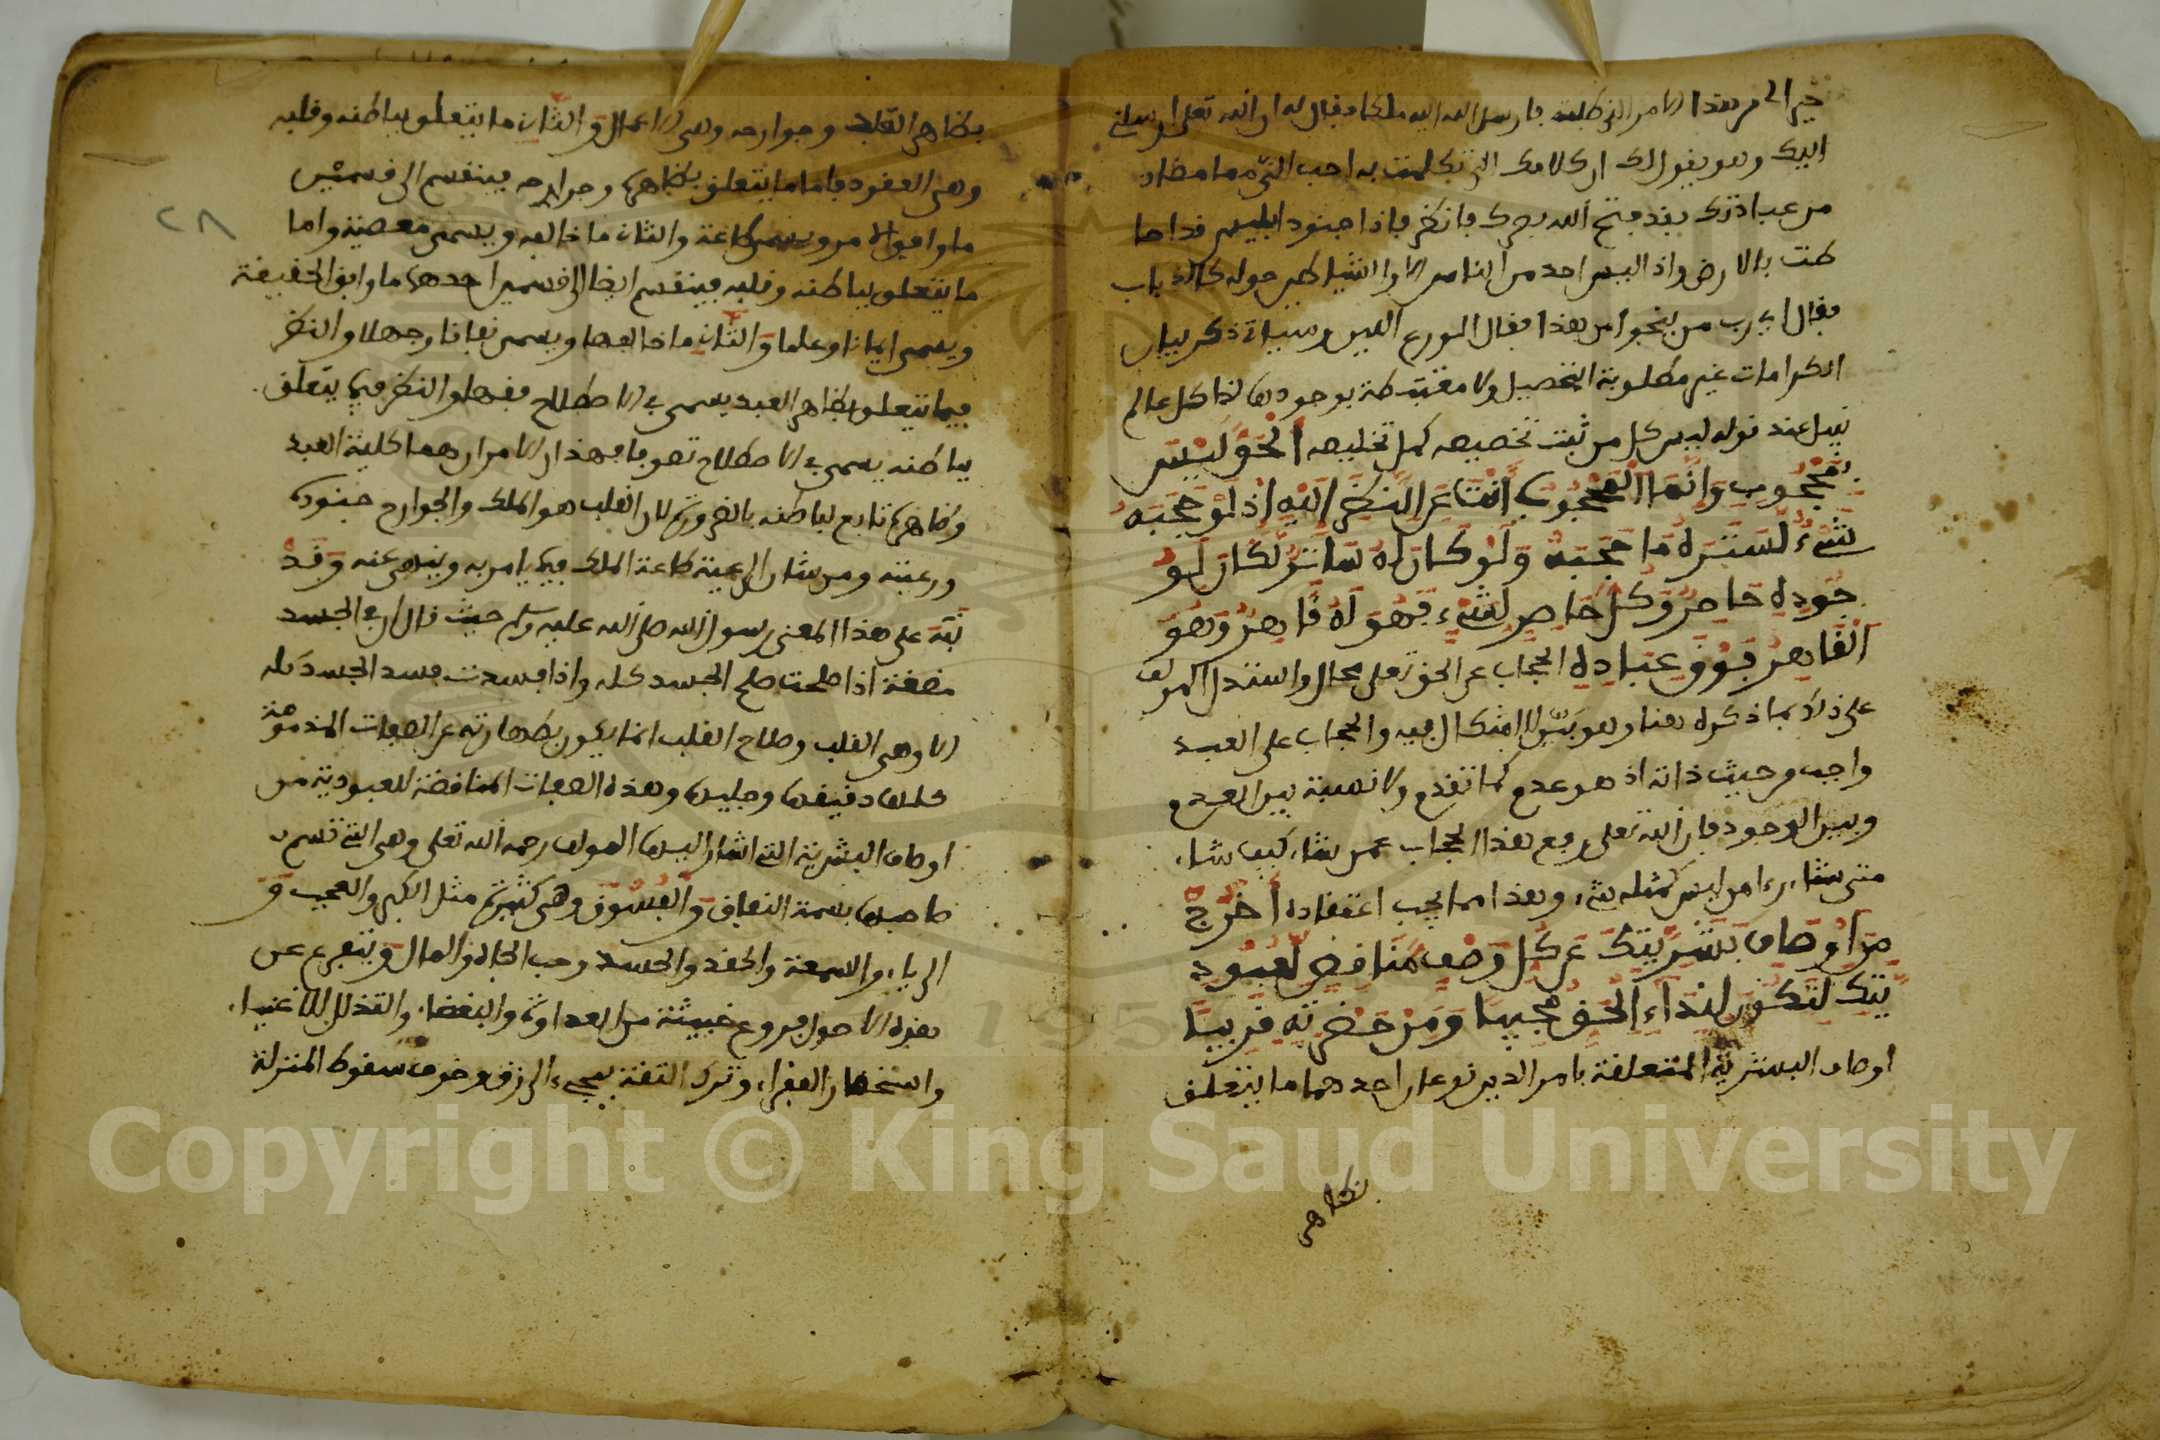 خير الى من هذا الامر الذي طلبت فارسل الله اليه ملكا فقال له ان الله تعلى ارسلني
اليك وهو يقول لك ان كلامك الذي تكلمت به احب الي مما مضى
من عبادتك وقد فتح الله بصرك فانظر فاذا جنود ابليس قد احا
طت بالارض واذا ليس احد من الناس الا والشياطين حوله كالذباب
فقال اي رب من ينجوا من هذا فقال الورع اللين وسياتي ذكر بيان
الكرامات غير مطلوبة التحصيل ولا مغتبطة بوجودها لذا كل عالم
نبيل عند قوله ليس كل من ثبت تخصيصه كمل تخليصه الحق ليس
بمحجوب وانما المحجوب انت عن النظر اليه اذ لو حجبه
شيء لستره ما حجبه ولو كان له ساتر لكان لو
جوده حاصر وكل حاصر لشيء فهو له قاهر وهو
القاهر فوق عباده الحجاب عن الحق تعلى محال واستدل المولف
على ذلك بما ذكره هنا وهو بين لا اشكال فيه والحجاب على العبد
واجب من حيث ذاته اذ هو عدم كما تقدم ولا نسبة بين العدم
وبين الوجود فان الله تعلى رفع هذا الحجاب عمن شاء كيف شاء
متى شاء راى من ليس كمثله شيء وهذا مما يجب اعتقاده اخرج
من اوصاف بشريتك عن كل وصف مناقض لعبود
يتك لتكون لنداء الحق مجيبا ومن حضرته قريبا
اوصاف البشرية المتعلقة بامر الدين نوعان احدهما ما يتعلق
بظاهر
بظاهر القلب وجوارحه وهي الاعمال والثاني ما يتعلق بباطنه وقلبه
وهي العقود فاما ما يتعلق بظاهره وجوارحه فينقسم الى قسمين
ما وافق الامر ويسمى طاعة والثاني ما خالفه ويسمى معصية واما
ما يتعلق بباطنه وقلبه فينقسم ايضا الى قسمين احدهما ما وافق الحقيقة
ويسمى ايمانا وعلما والثاني ما خالفها ويسمى نفاقا وجهلا والنظر
فيما يتعلق بظاهر العبد يسمى في الاصطلاح فقها والنظر فيما يتعلق
بباطنه يسمى في الاصطلاح تصوفا فهذان الامران هما كلية العبد
وظاهره تابع لباطنه بالضرورة لان القلب هو الملك والجوارح جنوده
ورعيته ومن شان الرعية طاعة الملك فيما يامر به وينهى عنه وقد
نبه على هذا المعنى رسول الله صلى الله عليه وسلم حيث قال ان في الجسد
مضغة اذا صلحت صلح الجسد كله واذا فسدت فسد الجسد كله
الا وهي القلب وصلاح القلب انما يكون بطهارته عن الصفات المذمومة
كلها دقيقها وجليلها وهذه الصفات المناقضة للعبودية من
اوصاف البشرية التي اشار اليها المولف رحمه الله تعلى وهي التي تسم
صاحبها بسمة النفاق والفسوق وهي كثيرة مثل الكبر والعجب و
الرياء والسمعة والحقد والحسد وحب الجاه والمال ويتفرع عن
هذه الاصول فروع خبيثة من العداوة والبغضاء والتذلل للاغنياء
واستحقار الفقراء وترك الثقة بمجيء الرزق وخوف سقوط المنزلة
٢٨
Copyright © King Saud University